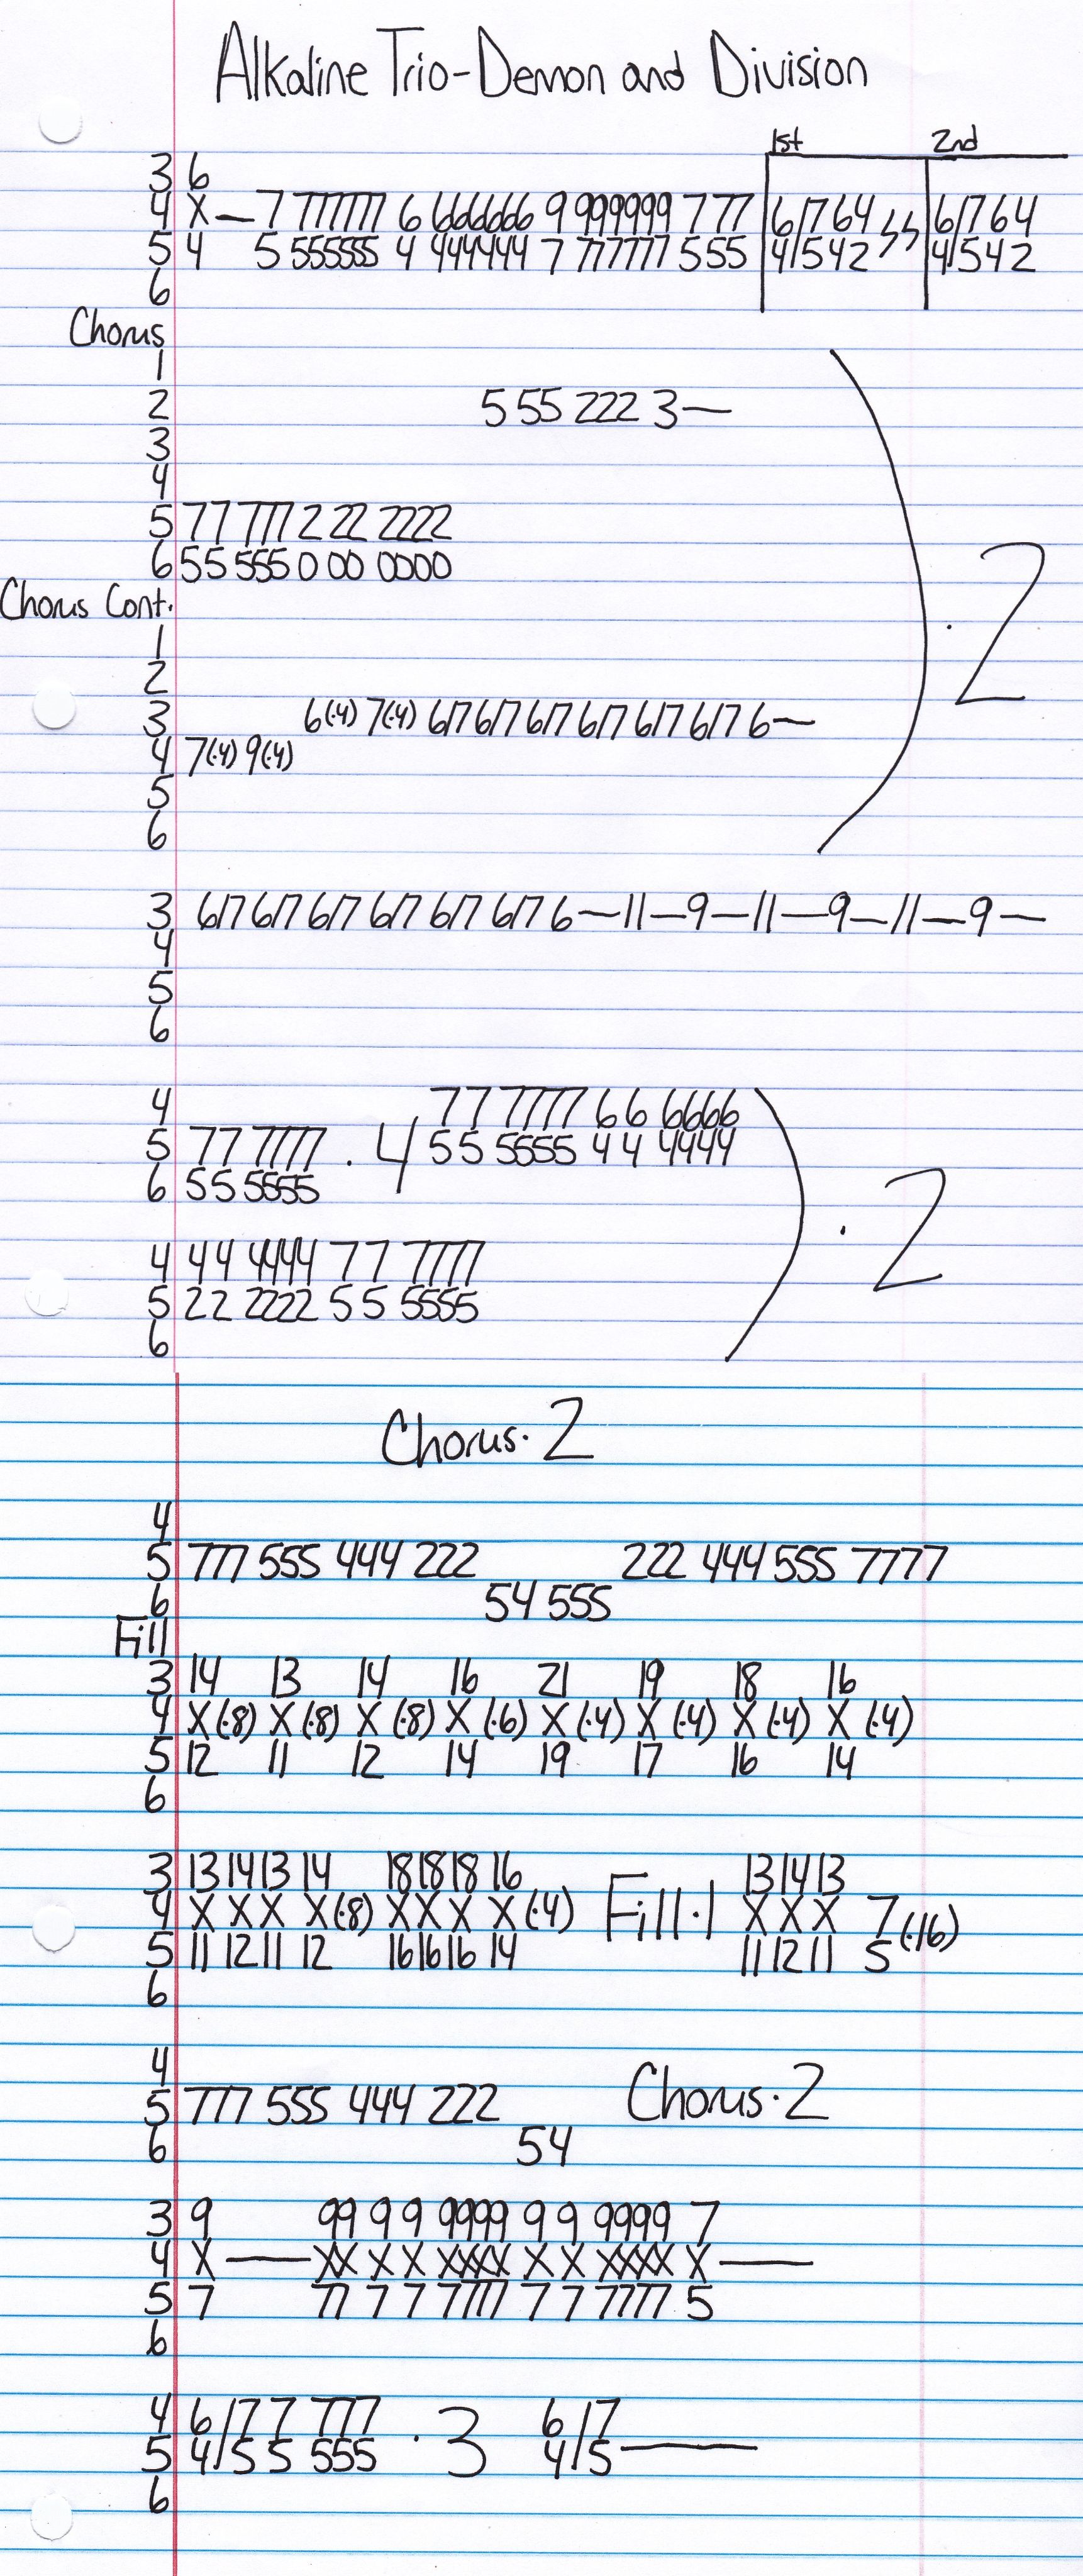 Alkaline Trio-Demon and Division
1st 2nd
3 6
4 X — 7 777777 6 666666 9 999999 7 777 6/764 𝄽𝄽 6/764
5 4 5 555555 4 444444 7 777777 5 555 4/542 4/542
6
Chorus
1
2 5 55 222 3—
3
4
5 77 777 2 22 2222
6 55 555 0 00 0000
·2
Chorus Cont.
1
2
3 6(·4) 7(·4) 6/7 6/7 6/7 6/7 6/7 6/7 6—
4 7(·4) 9(·4)
5
6
3 6/7 6/7 6/7 6/7 6/7 6/7 6—11—9—11—9—11—9—
4
5
6
4 77 7777 66 6666
5 77 7777 ·4 55 5555 44 4444
6 55 5555
·2
4 44 4444 77 7777
5 22 2222 55 5555
6
Chorus·2
4
5 777 555 444 222 222 444 555 7777
6 54 555
Fill
3 14 13 14 16 21 19 18 16
4 X(·8) X(·8) X(·8) X(·6) X(·4) X(·4) X(·4) X(·4)
5 12 11 12 14 19 17 16 14
6
3 13 14 13 14 18 18 18 16 13 14 13
4 X X X X(·8) X X X X(·4) Fill·1 X X X 7(·16)
5 11 12 11 12 16 16 16 14 11 12 11 5
6
4
5 777 555 444 222 Chorus·2
6 54
3 9 99 9 9 9999 9 9 9999 7
4 X — XX X X XXXX X X XXXX X —
5 7 77 7 7 7777 7 7 7777 5
6
4 6/7 7 777 ·3 6/7
5 4/5 5 555 4/5 —
6